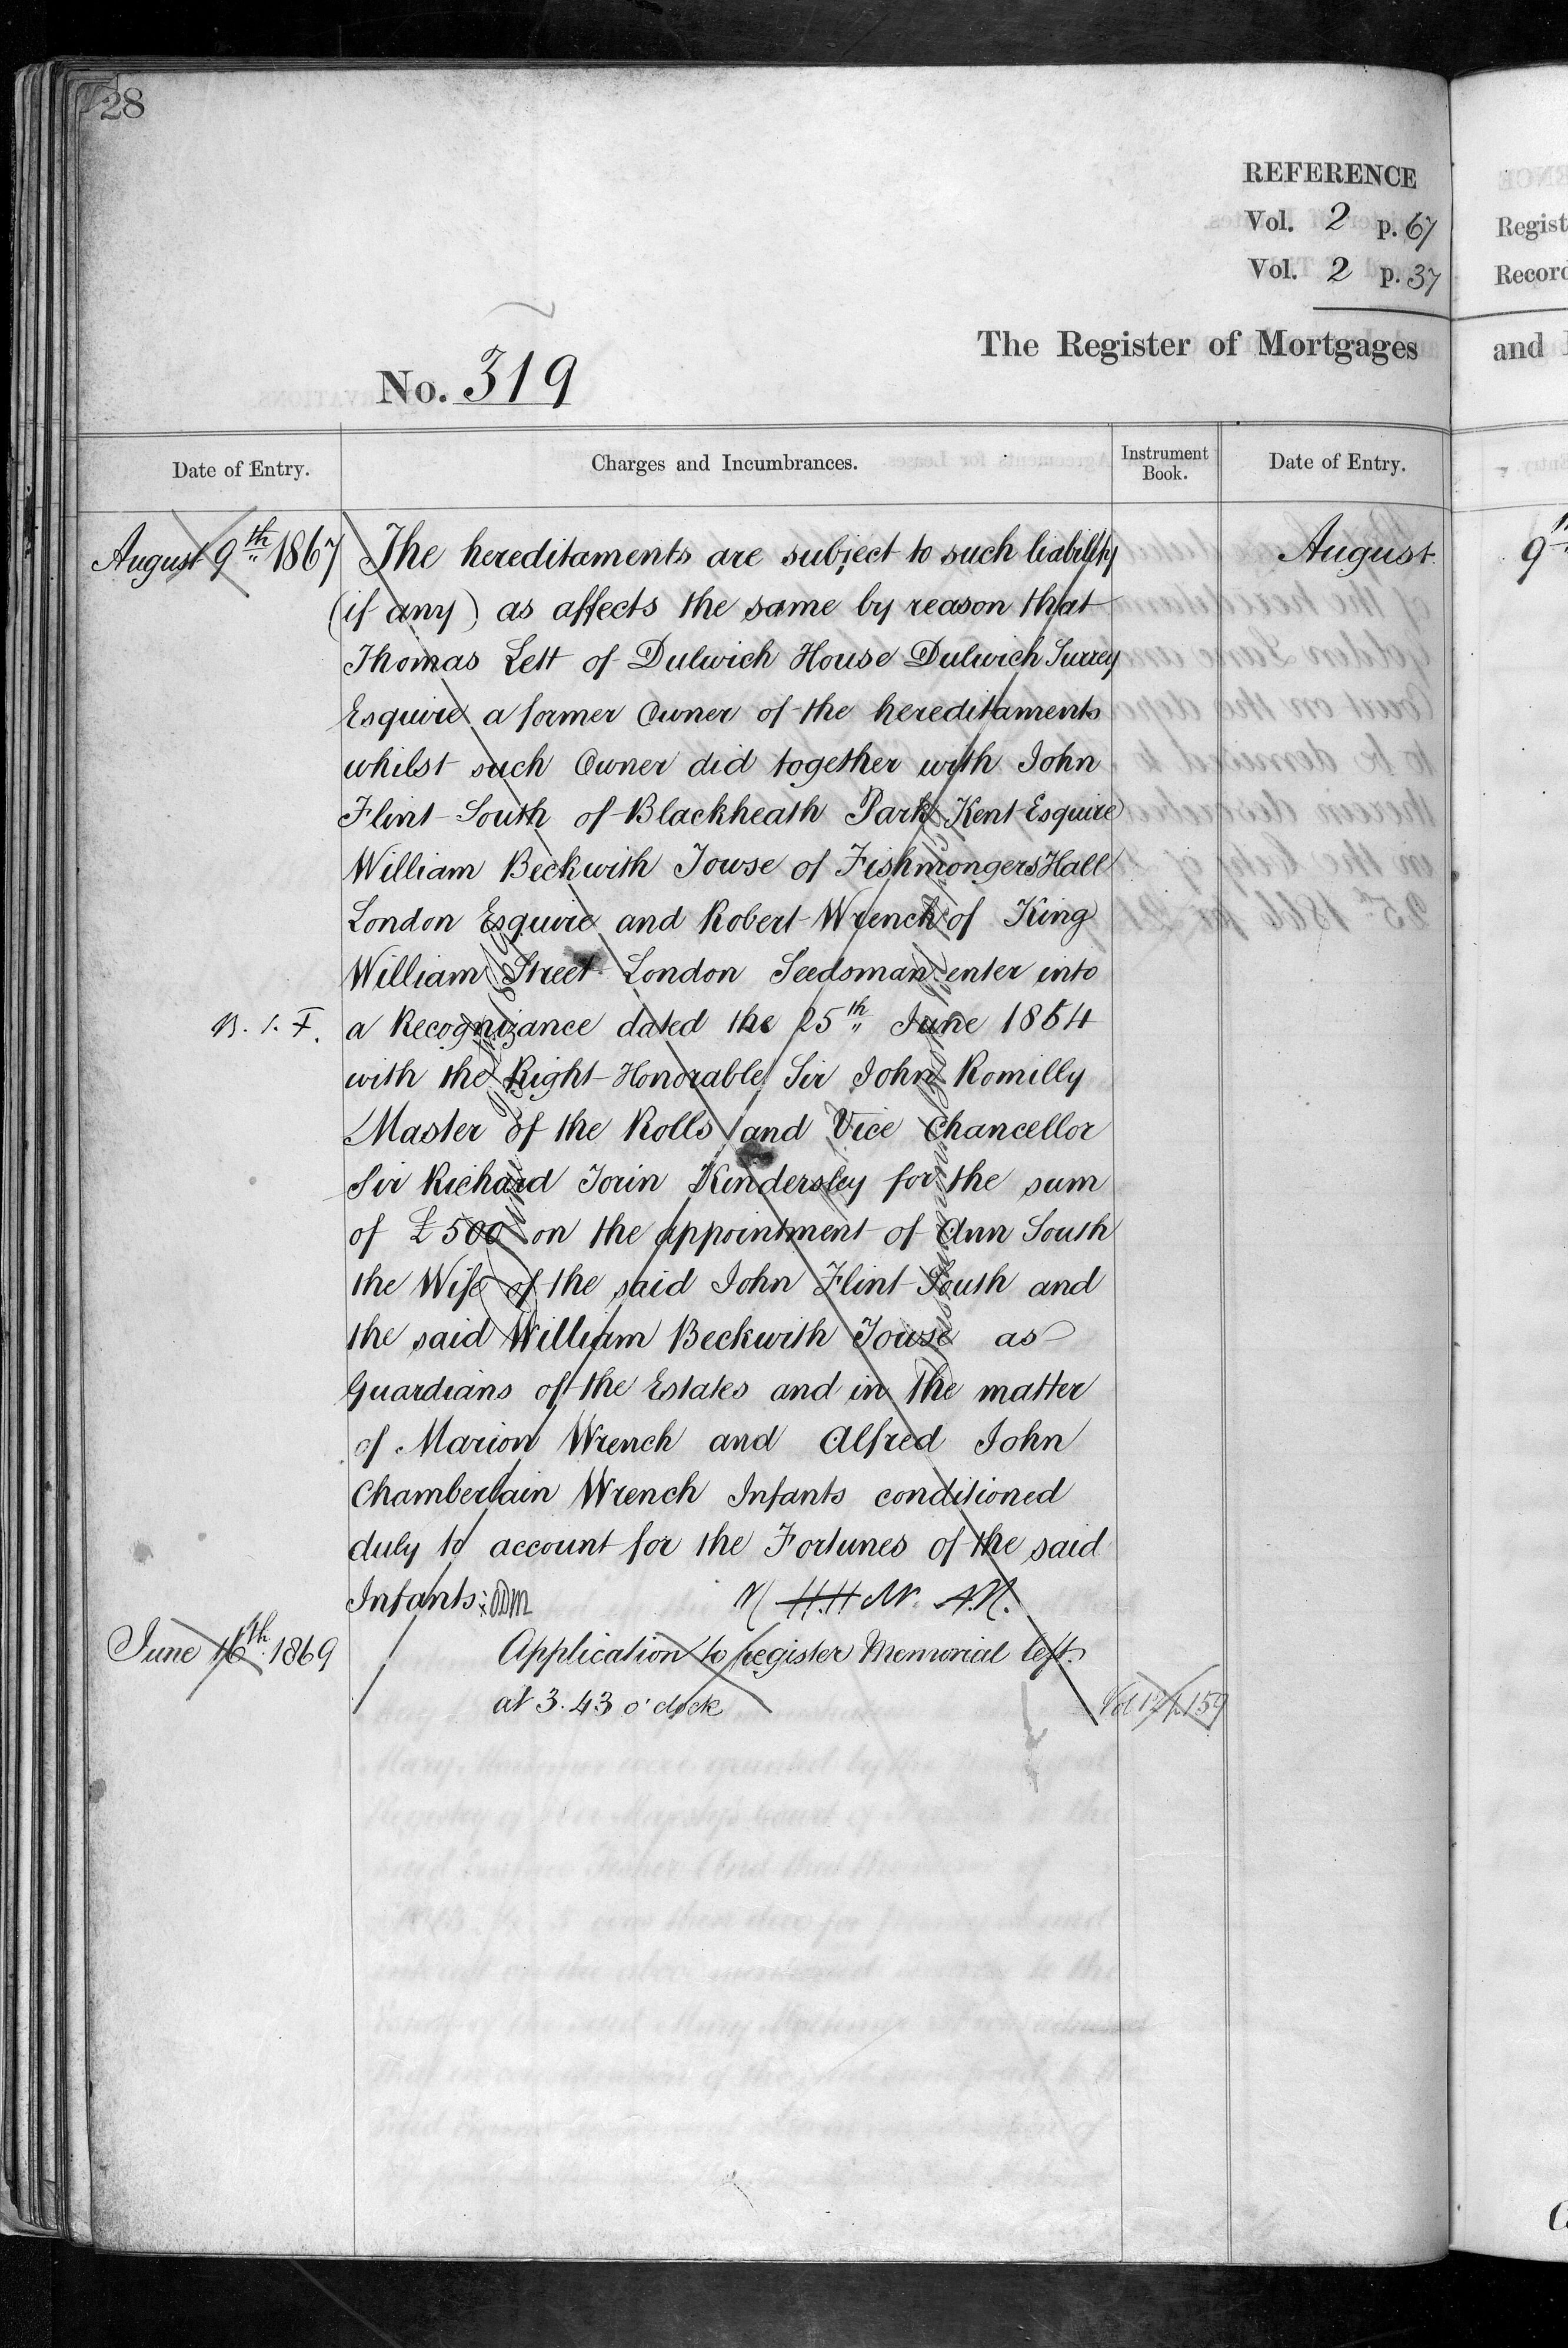 28
REFERENCE
Vol. 2 p. 67
Vol. 2 p. 37
The Register of Mortgages
No. 319
Date of Entry.
Charges and Incumbrances.
Instrument Book.
Date of Entry.
August 9th 1867
The hereditaments are subject to such liability
(if any) as affects the same by reason that
Thomas Lett of Dulwich House Dulwich Surrey
Esquire a former Owner of the hereditaments
whilst such Owner did together with John
Flint South of Blackheath Park Kent Esquire
William Beckwith Towse of Fishmongers Hall
London Esquire and Robert Wrench of King
William Street London Seedsman enter into
a Recognizance dated the 25th June 1864
with the Right Honorable Sir John Romilly
Master of the Rolls and Vice Chancellor
Sir Richard Torin Kindersley for the sum
of £500 on the appointment of Ann South
the Wife of the said John Flint South and
the said William Beckwith Towse as
Guardians of the Estates and in the matter
of Marion Wrench and Alfred John
Chamberlain Wrench Infants conditioned
duly to account for the Fortunes of the said
Infants:
June 16th 1869
Application to register Memorial left
at 3.43 o'clock
August
9
Regist
Record
and